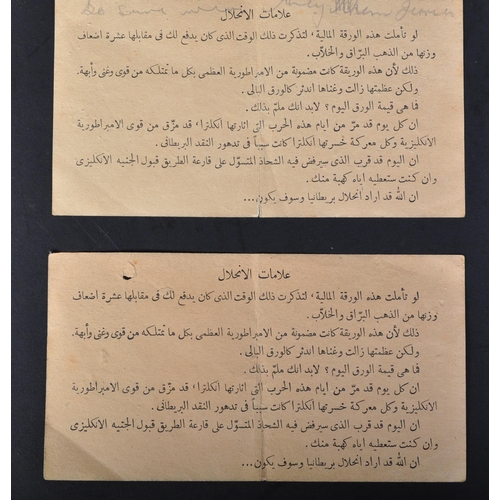 De
علامات الانحلال
لو تأملت هذه الورقة المالية، لتذكرت ذلك الوقت الذى كان يدفع لك فى مقابلها عشرة اضعاف
وزنها من الذهب البرّاق والخلاّب.
ذلك لأن هذه الوريقة كانت مضمونة من الامبراطورية العظمى بكل ما تمتلكه من قوى وغنى وأبهة.
ولكن عظمتها زالت وغناها اندثر كالورق البالى.
فما هى قيمة الورق اليوم؟ لابد انك ملمّ بذلك.
ان كل يوم قد مرّ من ايام هذه الحرب التى اثارتها انكلترا، قد مزّق من قوى الامبراطورية
الانكليزية وكل معركة خسرتها انكلترا كانت سبباً فى تدهور النقد البريطانى.
ان اليوم قد قرب الذى سيرفض فيه الشحاذ المتسوّل على قارعة الطريق قبول الجنيه الانكليزى
وان كنت ستعطيه اياه كهبة منك.
ان الله قد اراد انحلال بريطانيا وسوف يكون...
علامات الانحلال
لو تأملت هذه الورقة المالية، لتذكرت ذلك الوقت الذى كان يدفع لك فى مقابلها عشرة اضعاف
وزنها من الذهب البرّاق والخلاّب.
ذلك لأن هذه الوريقة كانت مضمونة من الامبراطورية العظمى بكل ما تمتلكه من قوى وغنى وأبهة.
ولكن عظمتها زالت وغناها اندثر كالورق البالى.
فما هى قيمة الورق اليوم؟ لابد انك ملمّ بذلك.
ان كل يوم قد مرّ من ايام هذه الحرب التى اثارتها انكلترا، قد مزّق من قوى الامبراطورية
الانكليزية وكل معركة خسرتها انكلترا كانت سبباً فى تدهور النقد البريطانى.
ان اليوم قد قرب الذى سيرفض فيه الشحاذ المتسوّل على قارعة الطريق قبول الجنيه الانكليزى
وان كنت ستعطيه اياه كهبة منك.
ان الله قد اراد انحلال بريطانيا وسوف يكون...